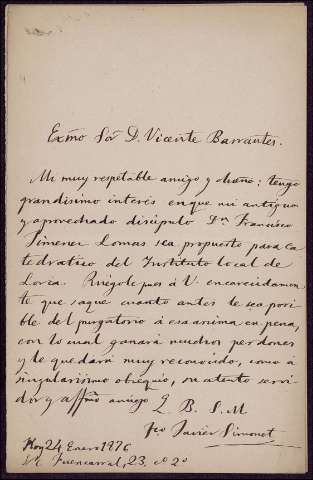 Exmo Sor D. Vicente Barrantes.
Mi muy respetable amigo y dueño: tengo
grandísimo interés en que mi antiguo
y aprovechado discípulo Dn Francisco
Jimenez Lomas sea propuesto para Ca
tedratico del Instituto local de
Lorca. Ruégole pues á V. encarecidamen
te que saque cuanto antes le sea posi
ble del purgatorio á esa anima en pena,
con lo cual ganará muchos perdones
y le quedará muy reconocido, como á
singularísimo obsequio, su atento servi
dor y affmo amigo Q. B. S. M
Fco Javier Simonet
Hoy 24 Enero 1876
Fuencarral, 23, co 2o